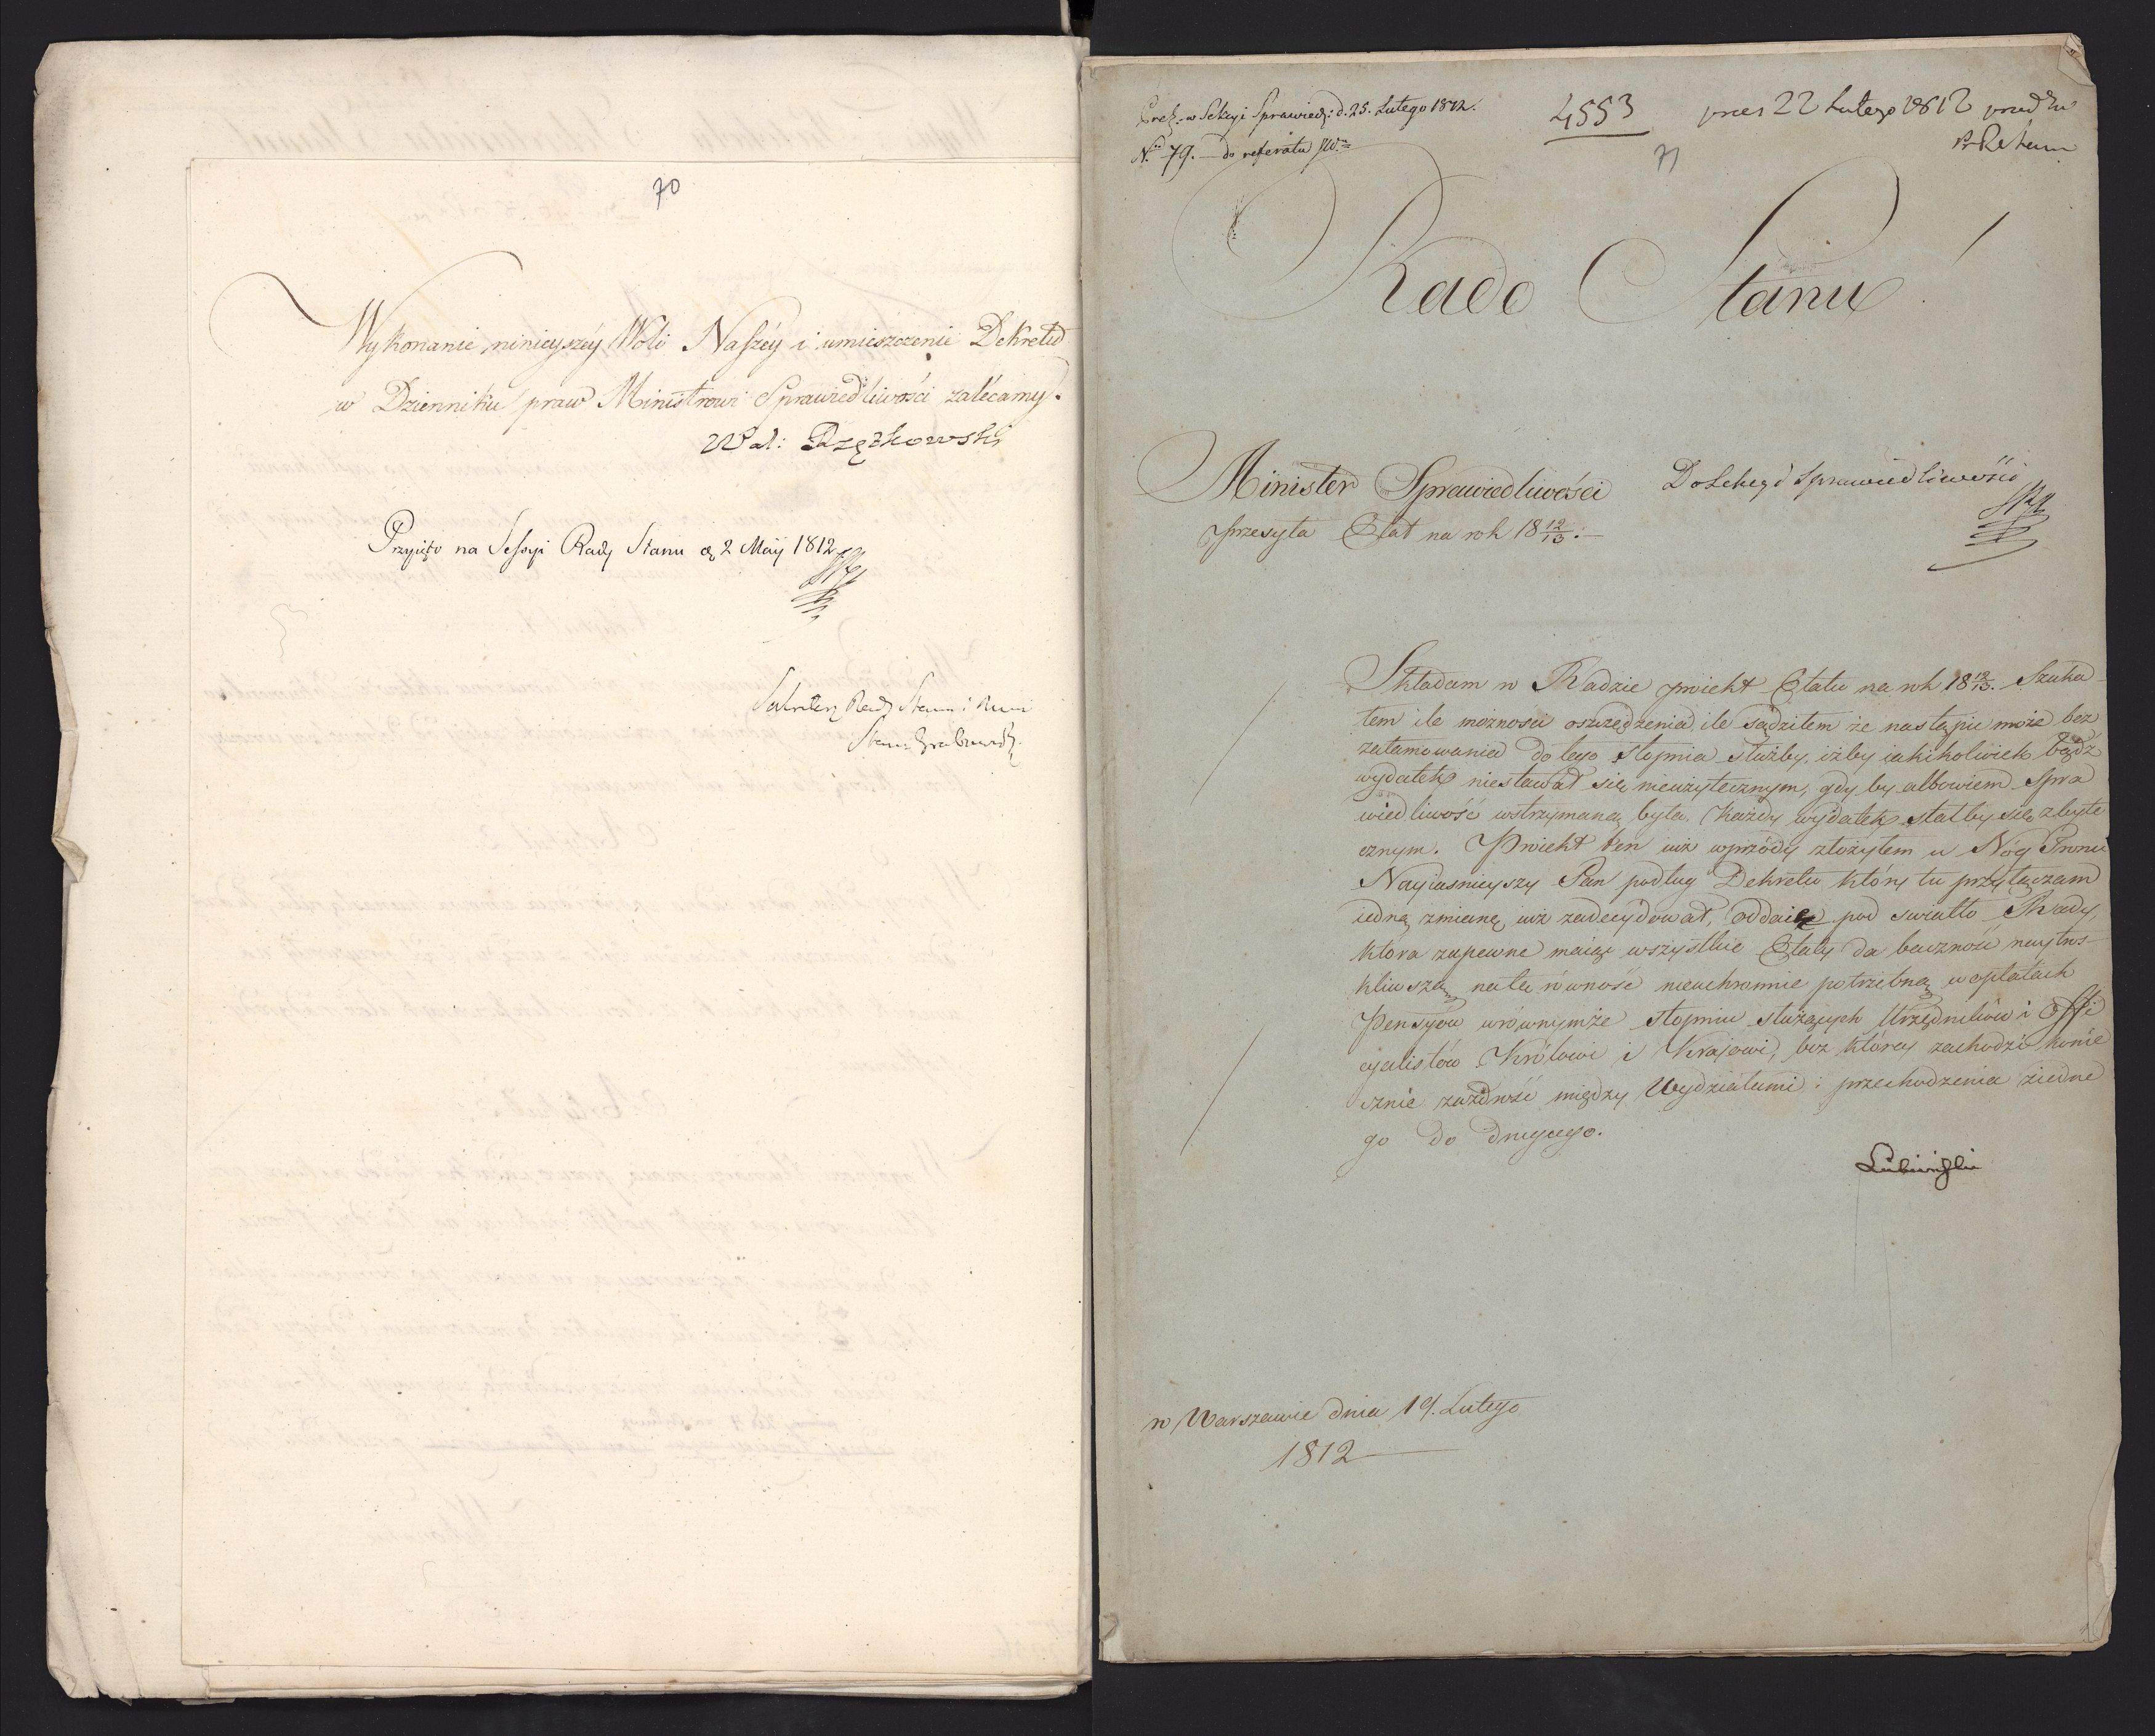 70
Wykonanie ninieyszéy Woli Naszéy i umieszczenie Dekretu
w Dzienniku praw Ministrowi Sprawiedliwości zalécamy.
Wal: Rzętkowski
Przyięto na Sessyi Rady Stanu d. 2 Maij 1812
Sekretarz Rady Stanu i
Stan: Grabowski
Prez: w Sekcyi Sprawied: d. 25. Lutego 1812.
4553
pres 22 Lutego 1812
N. 79. do referatu JW.
71
Rado Stanu!
Minister Sprawiedliwości
przesyła Etat na rok 18 12/13.
Do Sekcyi Sprawiedliwości
Składam w Radzie proiekt Etatu na rok 18 12/13. Szuka-
łem ile możności oszczędzenia, ile sądziłem że nastąpić może bez
zatamowania do tego stopnia służby, iżby iakikolwiek bądź
wydatek niestawał się nieużytecznym, gdy by albowiem spra
wiedliwość wstrzymaną była. Każdy wydatek stałby się zbyte
cznym. Proiekt ten iuż wprzódy złożyłem u Nóg Tronu
Nayiasnieyszy Pan podług Dekretu który tu przyłączam
iedną zmianę iuż zadecydował, oddaię pod swiatło Rady,
która zapewne maiąc wszystkie Etaty da baczność naytros-
kliwszą na tę równość nieuchronnie potrzebną w opłatach
Pensyów w równymże stopniu służących Urzędników i Offi
cyalistów Królowi i Krajowi, bez któréy zachodzi konie
cznie zazdrość między Wydziałami i przechodzenia z iedne
go do drugiego.
Lubieński
w Warszawie dnia 19. Lutego
1812